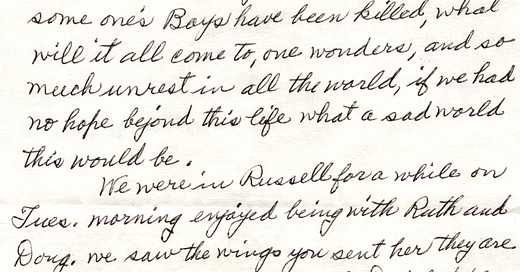 some one's Boys have been killed, what
will it all come to, one wonders, and so
much unrest in all the world, if we had
no hope bejond this life what a sad world
this would be.
We were in Russell for a while on
Tues. morning enjoyed being with Ruth and
Doug. we saw the wings you sent her they are